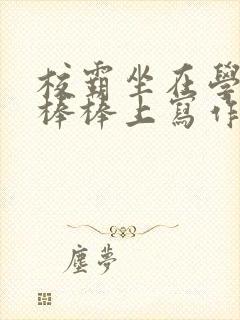 校霸坐在學
棒棒上寫作
塵夢